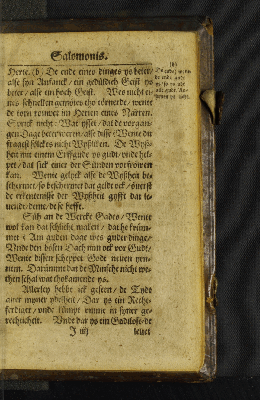 Salomonis.
Herte. (b) De ende eines dinges ys beter/
alse syn Anfanck/ ein gedüldich Geist ys
beter/ alse ein hoch Geist. Wes nicht ei-
nes schnellen gemötes tho törnende/ wente
de torn rouwet im Herten eines Narren.
Sprick nicht: Wat ysset/ dat de vörgan-
gen Dage beter weren/ alse disse? Wente du
fragest sölckes nicht Wyßliken. De Wyß-
heit mit einem Erffgude ys gudt/ vnde helpet/
dat sick einer der Sünnen vröuwen
kan. Wente gelyck alse de Wyßheit be-
schermet/ so beschermet dat geldt ock/ överst
de erkentenisse der Wyßheit gyfft dat le-
uendt/ deme/ de se hefft.
Süh an de Wercke Gades/ Wente
wol kan dat schlicht maken/ dat he krüm-
met? Am guden dage wes guder dinge/
Vnde den bösen Dach nim ock vor Gudt/
Wente dissen scheppet Godt neuen yen-
nen. Darümme dat de Minsche nicht we-
ten schal wat thokamende ys.
Allerley hebbe ick geseen/ de Tydt
auer myner ydelheit/ Dar ys ein Recht-
ferdiger/ vnde kümpt vmme in syner ge-
rechticheit. Vnde dar ys ein Gadtlose/ de
J iij
leuet
(b)